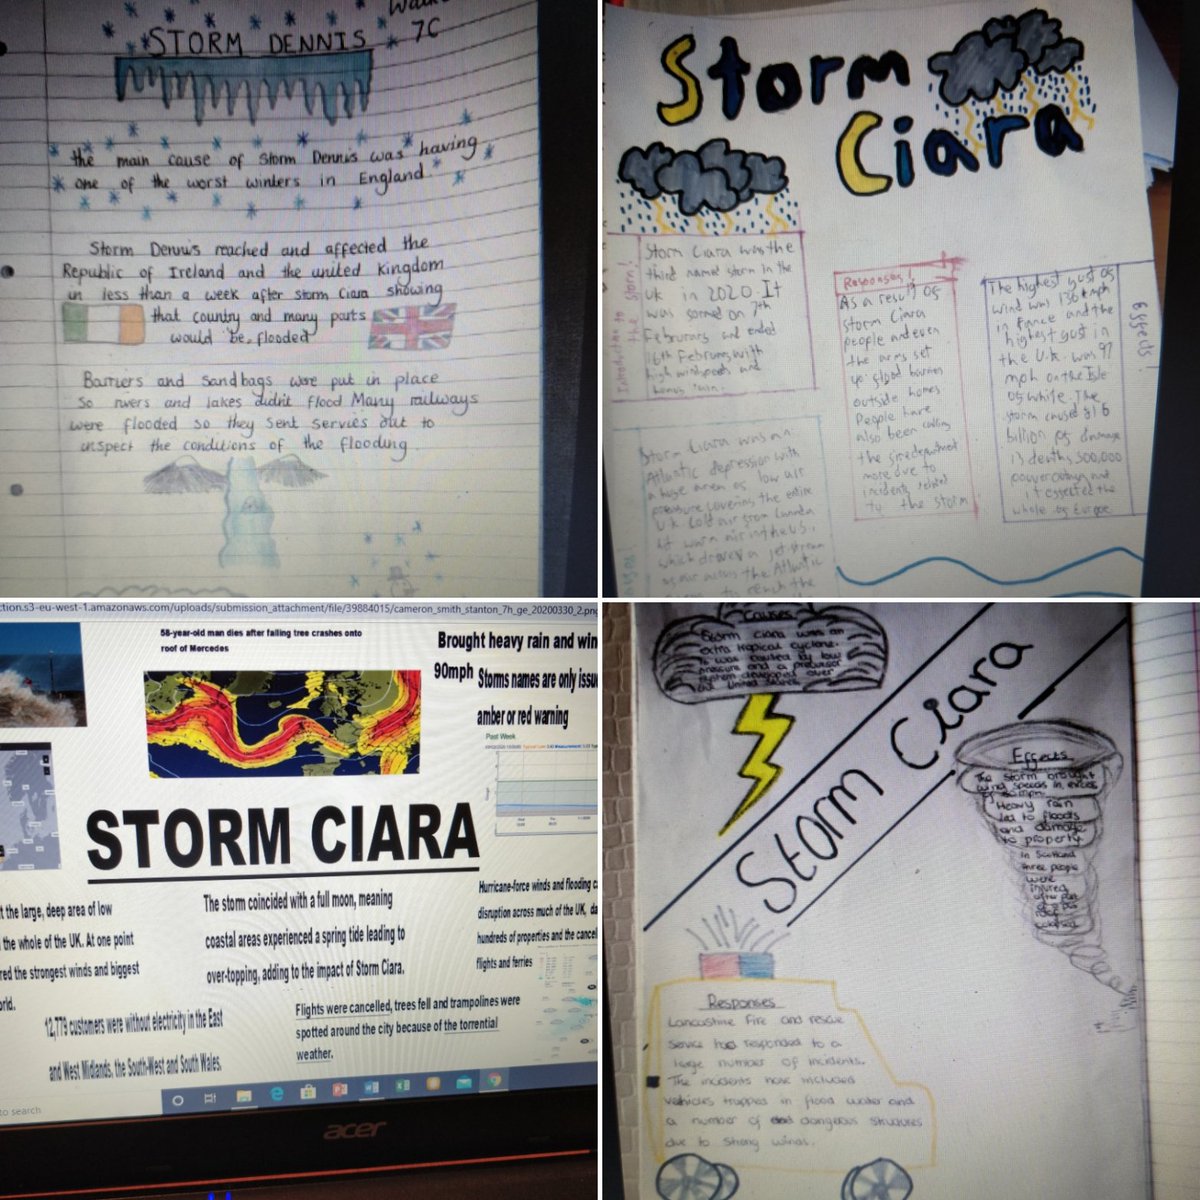 7C
STORM DENNIS
the main cause of Storm Dennis was having
one of the worst winters in England
Storm Dennis reached and affected the
Republic of Ireland and the united kingdom
in less than a week after storm Ciara showing
that country and many parts
would be flooded
Barriers and Sandbags were put in place
So rivers and lakes didn't flood Many railways
were flooded so they sent servies out to
inspect the conditions of the flooding
Storm
Ciara
Introduction to
the storm!
Storm Ciara was the
third named storm in the
UK in 2020. It
was formed on 7th
February and ended
16th February with
high windspeeds and
Storm Ciara was an
Atlantic depression with
a huge area of low air
pressure covering the entire
U.K. Cold air from Canada
warm air in the US,
which drove a jet stream
across the Atlantic
to reach the
Responses!
As a result of
Storm Ciara
people and even
the army set
up flood barriers
outside homes
People have
also been calling
the fire department
more due to
incidents related
to the storm
The highest gust of
wind was 136 mph
in France and the
highest gust in
the U.K. was 97
mph on the Isle
of white. The
storm caused of 1.6
billion of damage
13 deaths 500,000
power outages and
it effected the
whole of Europe
Effects!
ction.s3-eu-west-1.amazonaws.com/uploads/submission_attachment/file/39884015/cameron_smith_stanton_7h_ge_20200330_2.png
58-year-old man dies after falling tree crashes onto
roof of Mercedes
Brought heavy rain and win
90mph
Storms names are only issu
amber or red warning
Past Week
STORM CIARA
t the large, deep area of low
the whole of the UK. At one point
red the strongest winds and biggest
orld.
The storm coincided with a full moon, meaning
coastal areas experienced a spring tide leading to
over-topping, adding to the impact of Storm Ciara.
Hurricane-force winds and flooding c
disruption across much of the UK, da
hundreds of properties and the cancel
flights and ferries
12,779 customers were without electricity in the East
and West Midlands, the South-West and South Wales.
Flights were cancelled, trees fell and trampolines were
spotted around the city because of the torrential
weather.
to search
acer
Causes
Storm Ciara was an
extra tropical cyclone.
It was caused by low
pressure and a
system developed over
the United States
Storm Ciara
Effects
The storm brought
wind speeds in excess
of
Heavy rain
led to floods
and damage
to property
in Scotland
three people
were
injured
after part
of a pub
roof
Responses
Lancashire Fire and rescue
service had responded to a
large number of incidents.
The incidents have included
vehicles trapped in flood water and
a number of dangerous structures
due to strong winds.